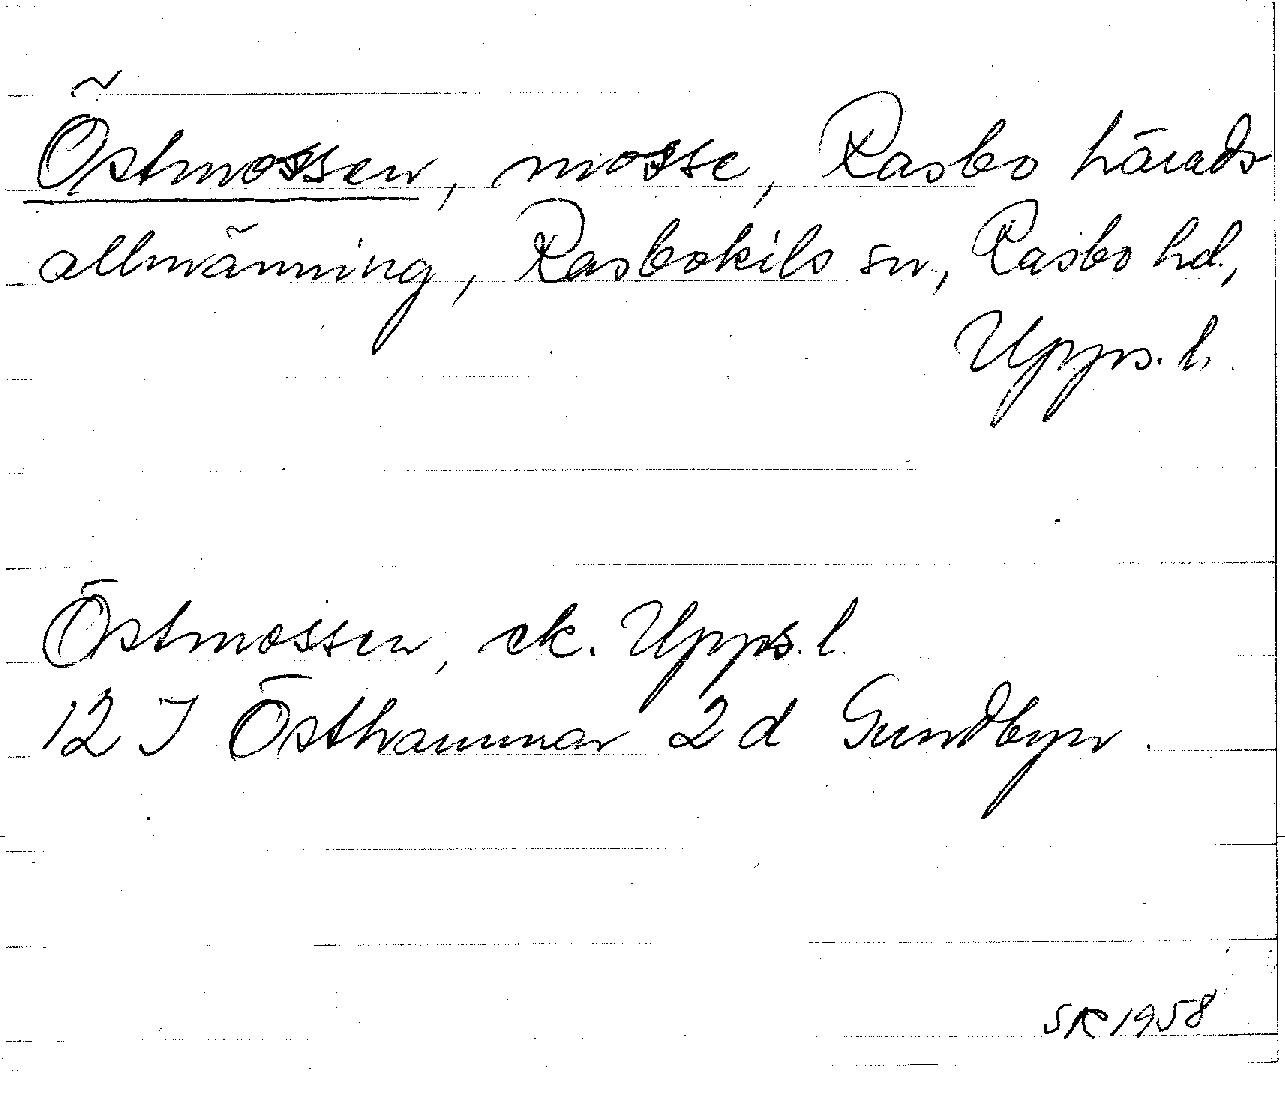 Östmossen, mosse, Rasbo härads
allmänning, Rasbokils sn, Rasbo hd,
Upps. l.
Östmossen, ek. Upps. l.
12 I Östhammar 2 d Gundbyn.
SR 1958